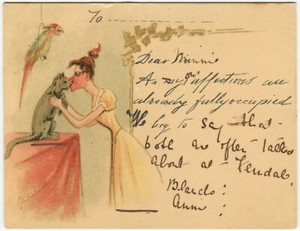 To
Dear Winnie
As my affections are
already fully occupied
We beg to say that
both are often talked
about at
Blardo:
Annie: